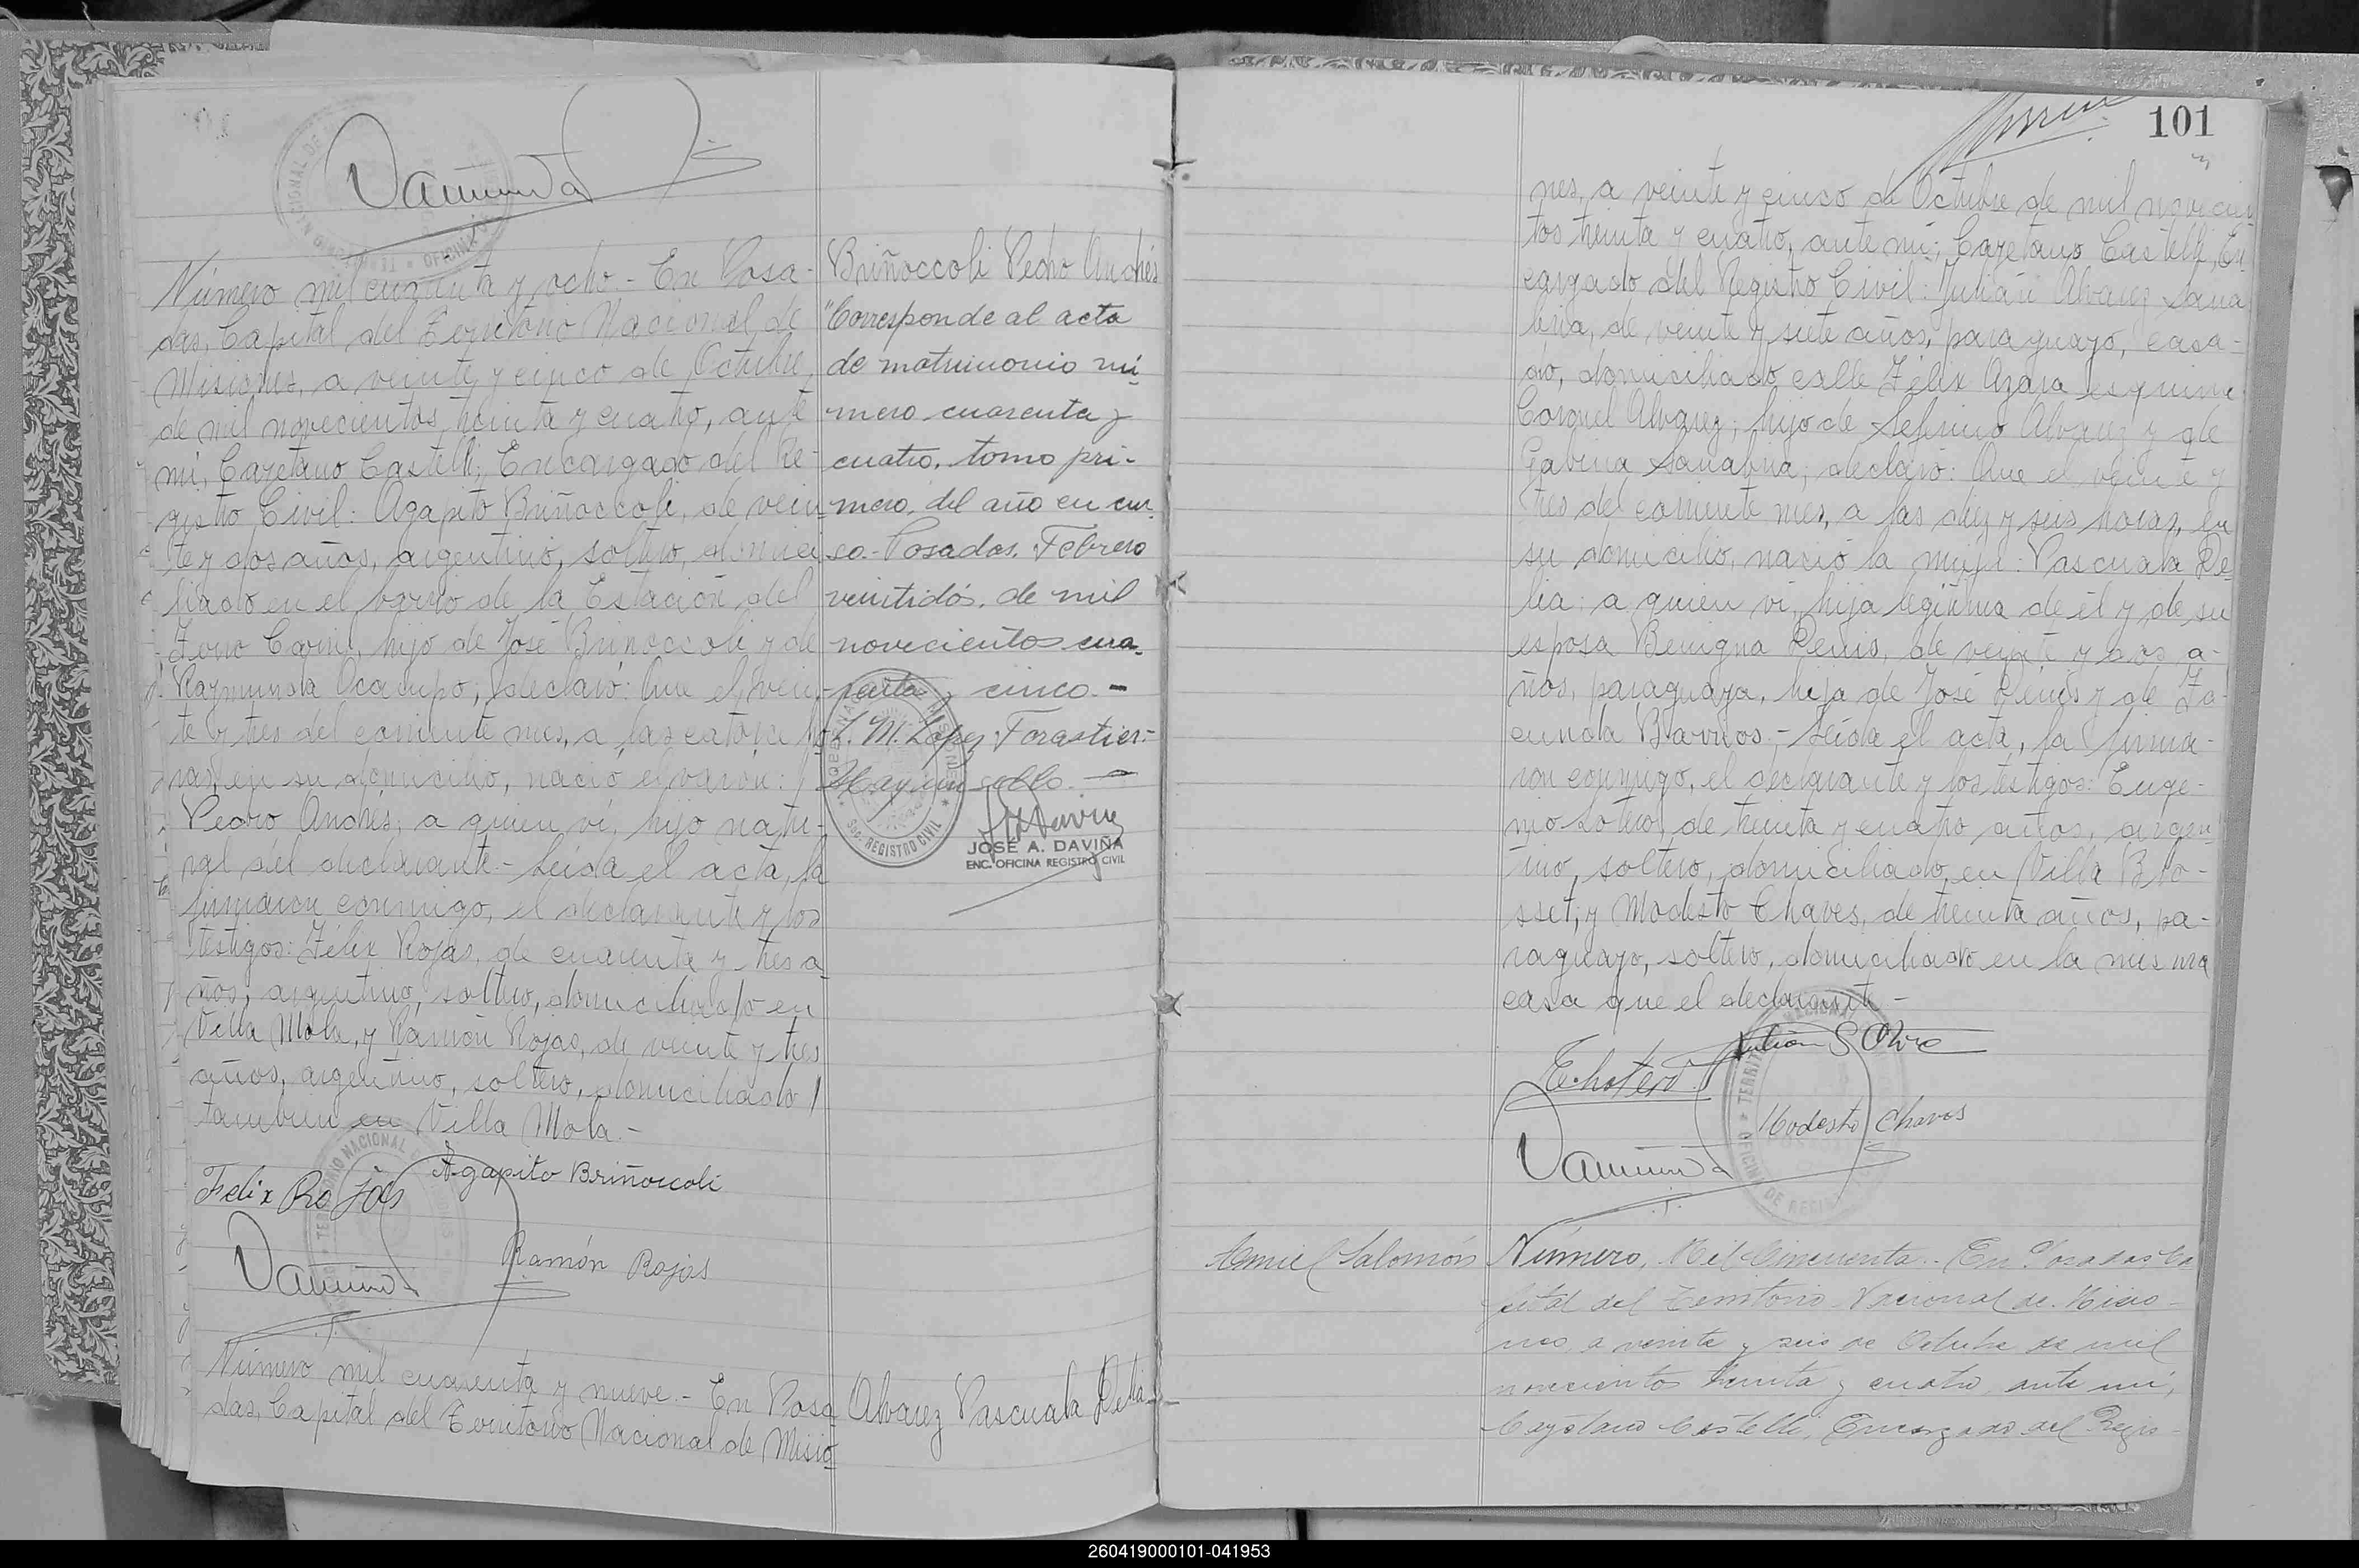 Número mil cuarenta y ocho.- En Posa-
das, Capital del Territorio Nacional de
Misiones, a veinte y cinco de Octubre
de mil novecientos treinta y cuatro, ante
mí, Cayetano Castelli, Encargado del Re-
gistro Civil: Agapito Briñoccoli, de vein-
te y dos años, argentino, soltero, domici-
liado en el barrio de la Estación del
Ferro Carril, hijo de José Briñoccoli y de
Raymunda Ocampo; declaró: Que el vein-
te y tres del corriente mes, a las catorce ho-
ras, en su domicilio, nació el varón:
Pedro Andrés; a quien ví, hijo natu-
ral del declarante.- Leída el acta, la
firmaron conmigo, el declarante y los
testigos: Félix Rojas, de cuarenta y tres a-
ños, argentino, soltero, domiciliado en
Villa Mola, y Ramón Rojas, de veinte y tres
años, argentino, soltero, domiciliado
tambien en Villa Mola.-
Felix Rojas
Agapito Briñoccoli
Ramón Rojas
Briñoccoli Pedro Andrés
"Corresponde al acta
de matrimonio nú-
mero cuarenta y
cuatro, tomo pri-
mero, del año en cur-
so.- Posadas, Febrero
veintidós, de mil
novecientos cua-
renta y cinco.-
L. M. López Forastier.-
Hay un sello.-
REGISTRO CIVIL
JOSÉ A. DAVIÑA
ENC. OFICINA REGISTRO CIVIL
Número mil cuarenta y nueve.- En Posa
das, Capital del Territorio Nacional de Misio
Alvarez Pascuala Delia.-
101
nes, a veinte y cinco de Octubre de mil novecien
tos treinta y cuatro, ante mí; Cayetano Castelli, En
cargado del Registro Civil: Julián Alvarez Sana
bria, de veinte y siete años, paraguayo, casa-
do, domiciliado calle Félix Azara esquina
Coronel Alvarez; hijo de Seferino Alvarez y de
Gabina Sanabria; declaró: Que el veinte y
tres del corriente mes, a las diez y seis horas, en
su domicilio, nació la mujer: Pascuala De-
lia; a quien ví, hija legítima de él y de su
esposa Benigna Denis, de veinte y dos a-
ños, paraguaya, hija de José Denis y de Fa-
cunda Barrios.- Leída el acta, la firma-
ron conmigo, el declarante y los testigos: Euge-
nio Sotero, de treinta y cuatro años, argen-
tino, soltero, domiciliado en Villa Blo-
sset, y Modesto Chaves, de treinta años, pa-
raguayo, soltero, domiciliado en la misma
casa que el declarante.-
Modesto Chaves
Salomón
Número, Mil Cincuenta.- En Posadas Ca
pital del Territorio Nacional de Misio-
nes, a veinte y seis de Octubre de mil
novecientos treinta y cuatro, ante mí,
Cayetano Castelli, Encargado del Regis-
260419000101-041953